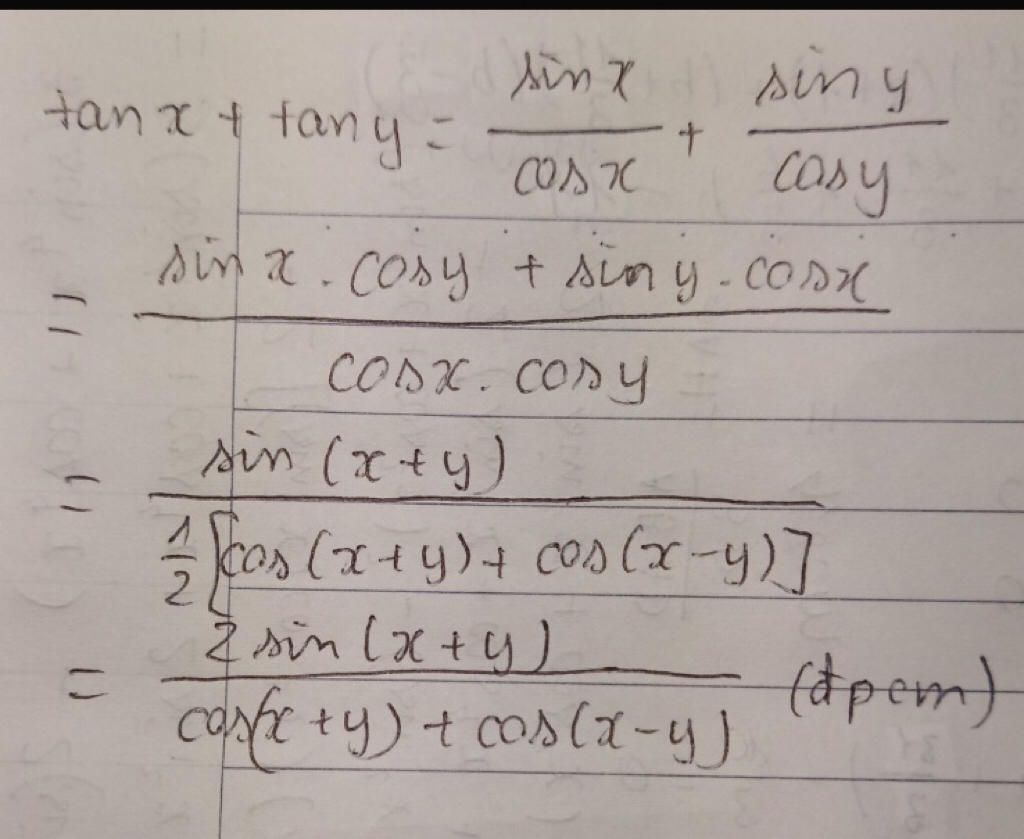 tan x + tan y = \frac{sin x}{cos x} + \frac{sin y}{cos y}
= \frac{sin x . cos y + sin y . cos x}{cos x . cos y}
= \frac{sin (x + y)}{\frac{1}{2} [cos (x + y) + cos (x - y)]}
= \frac{2 sin (x + y)}{cos (x + y) + cos (x - y)} (đpcm)